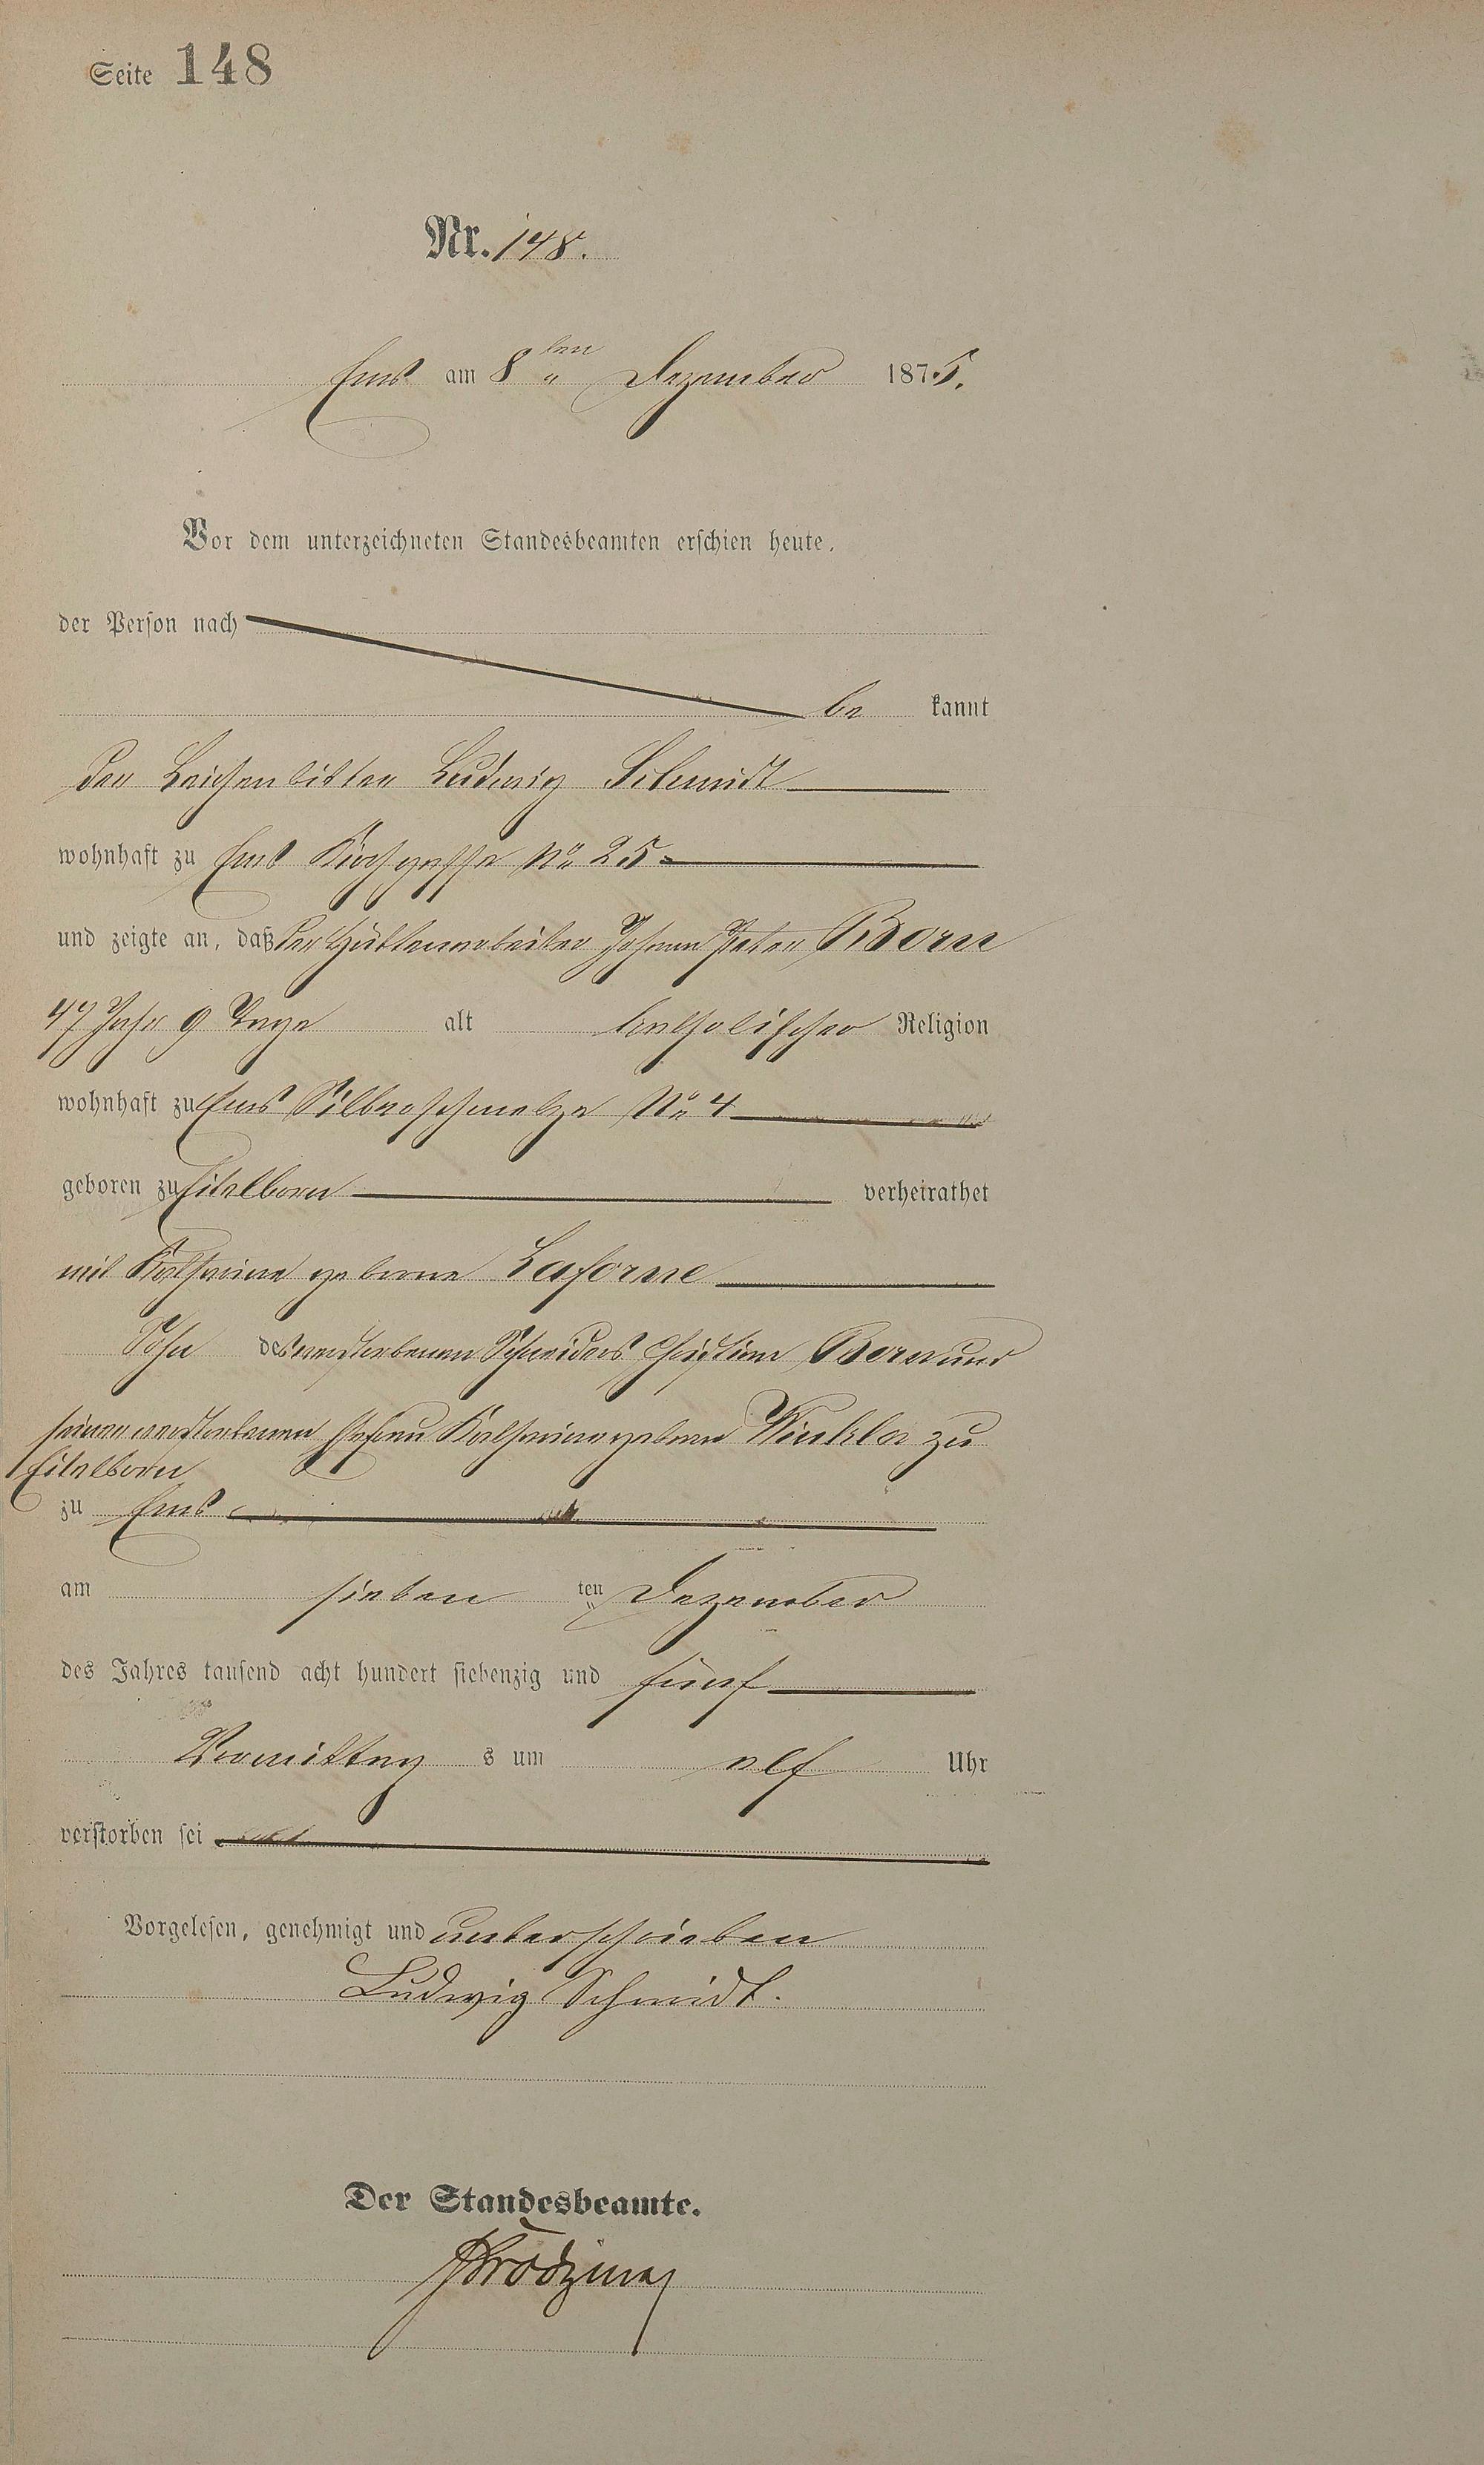 Seite 148
Nr. 148.
Ems am 8ten Dezember 1875.
Vor dem unterzeichneten Standesbeamten erschien heute,
der Person nach
be kannt
der Leichenbitter Ludwig Schmidt
wohnhaft zu Ems Kirchgasse No 25
und zeigte an, daß der Hüttenarbeiter Johann Peter Born
47 Jahr 9 Tage alt katholischer Religion
wohnhaft zu Ems Silberschmelze No 4
geboren zu Eitelborn verheirathet
mit Katharina geborne Laforne
Sohn des verstorbenen Schneiders Christian Born und
seiner verstorbenen Ehefrau Katharina geborne Winkler zu
Eitelborn
zu Ems
am sieben ten Dezember
des Jahres tausend acht hundert siebenzig und fünf
Vormittag s um elf Uhr
verstorben sei
Vorgelesen, genehmigt und unterschrieben
Ludwig Schmidt.
Der Standesbeamte.